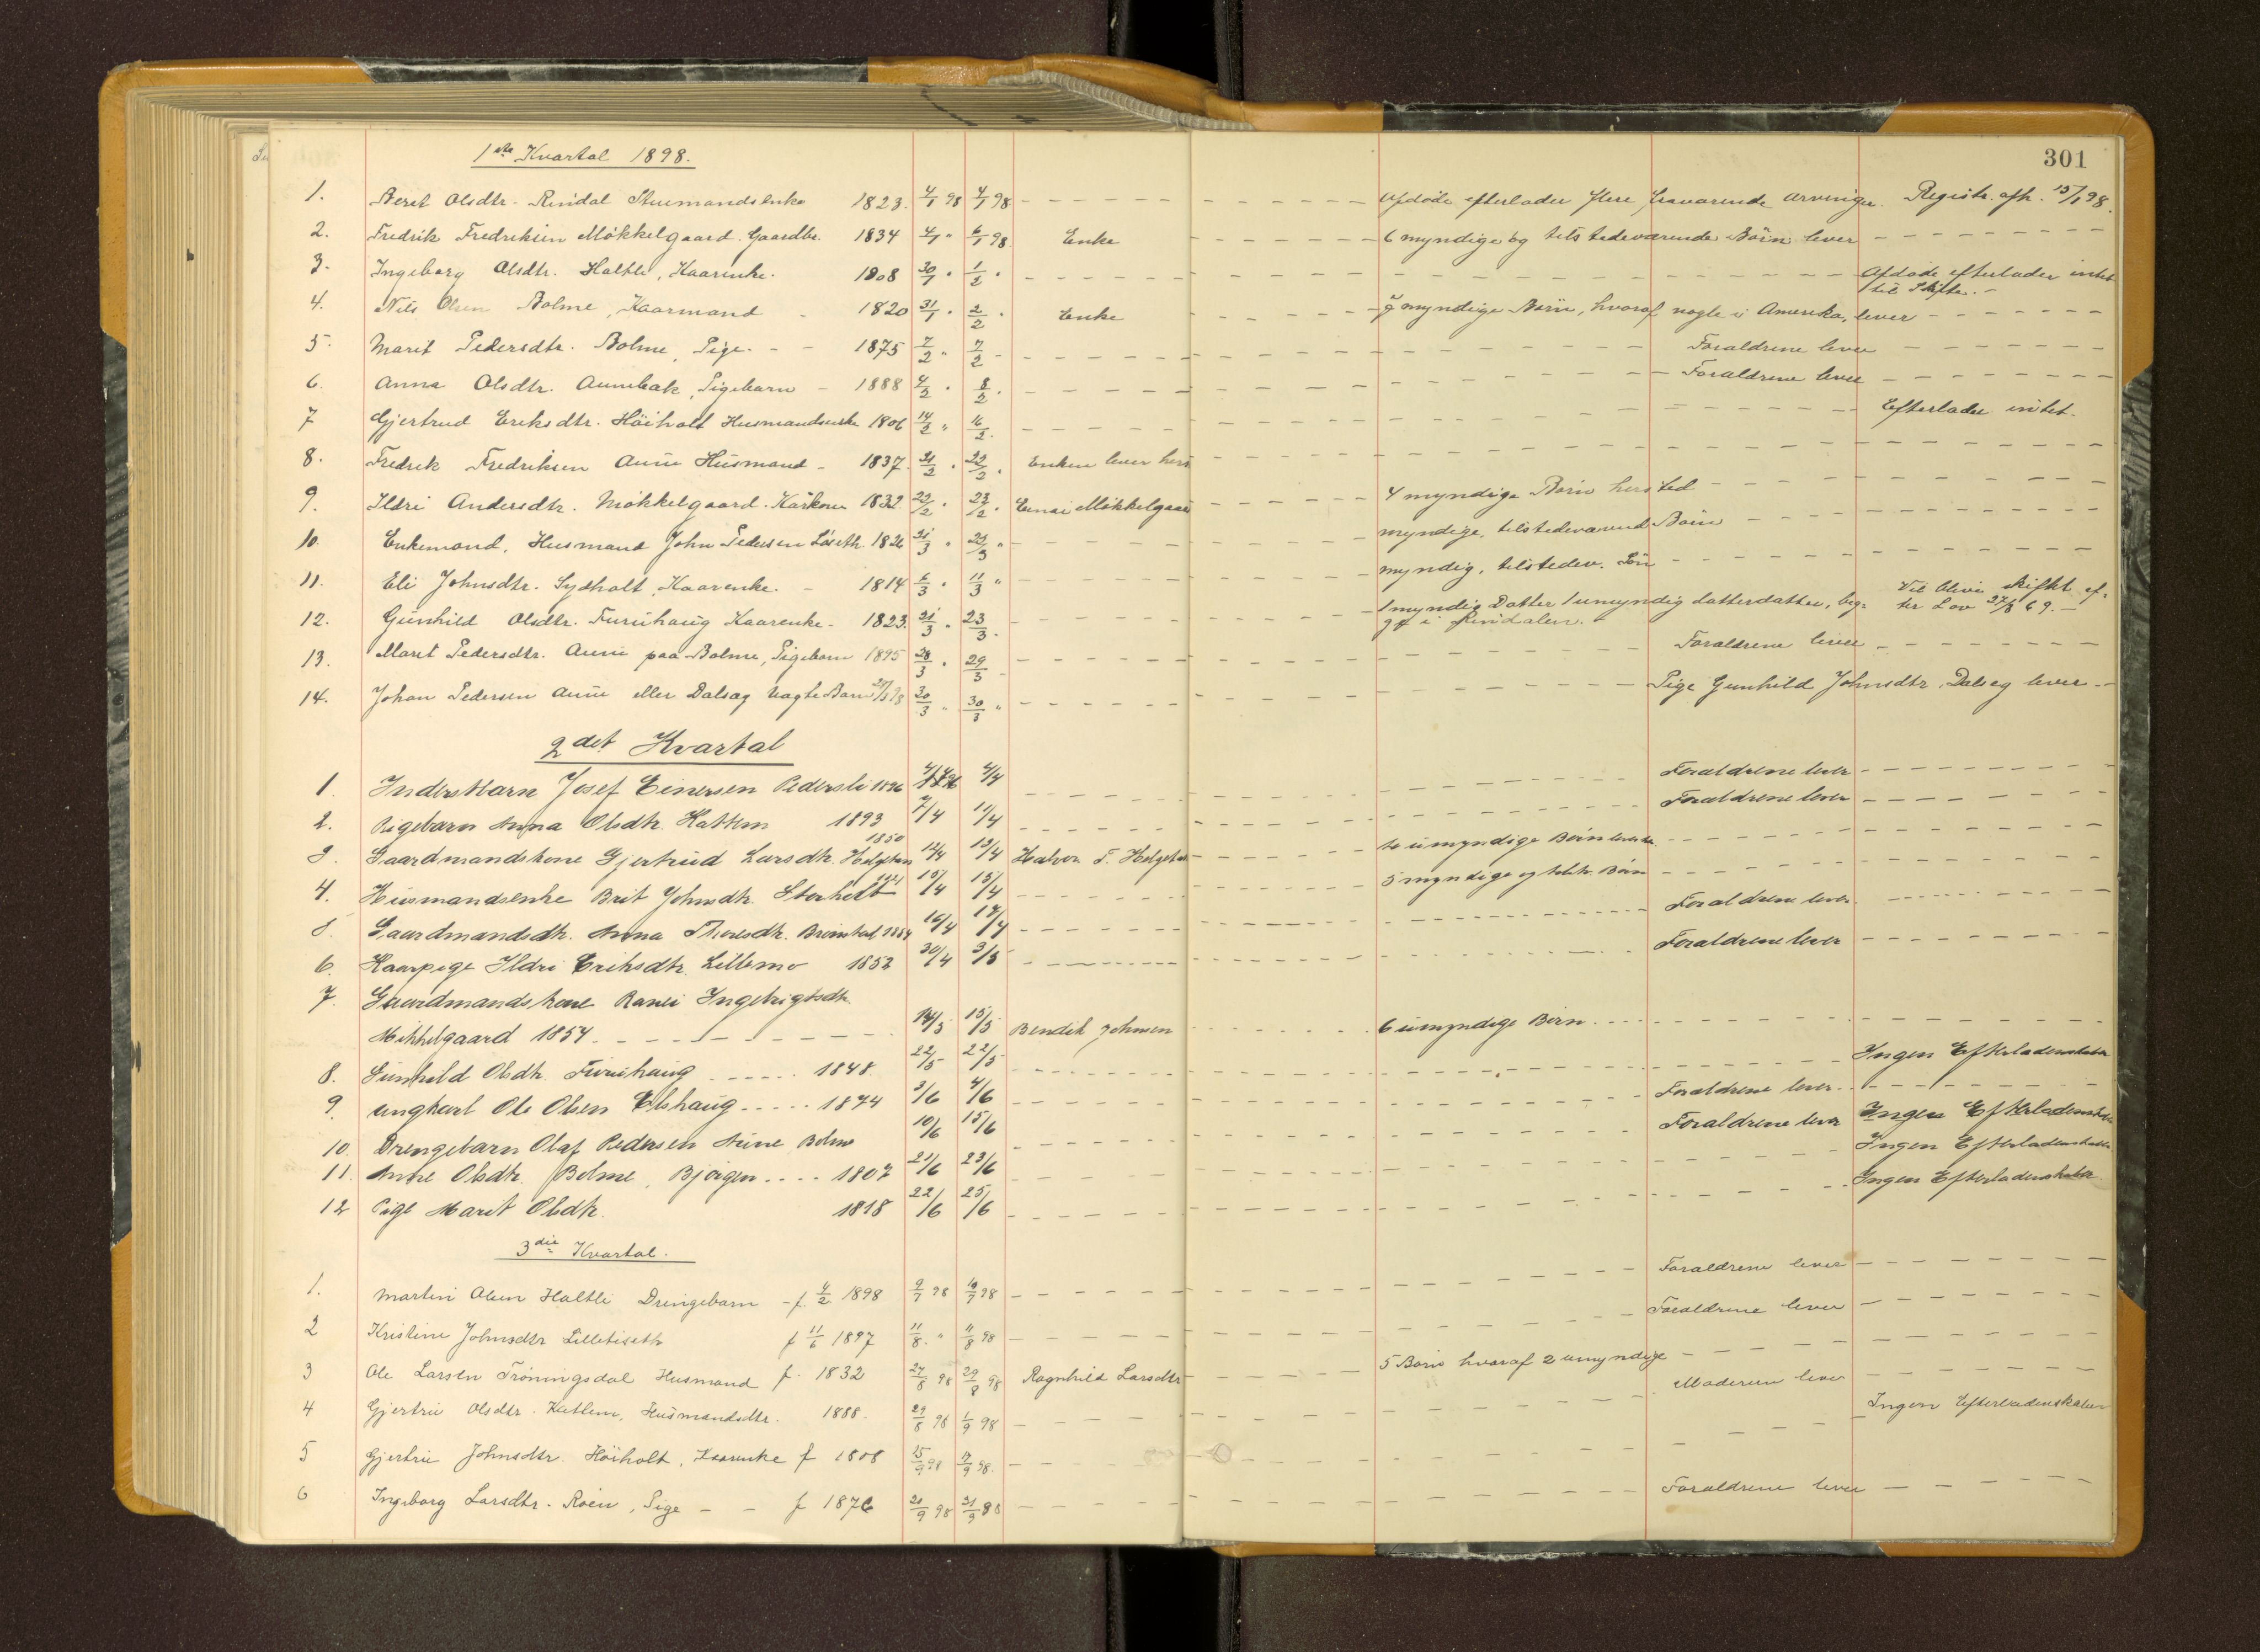 301
1ste Kvartal 1898.
1. Beret Olsdtr. Rindal Stuemandsenke 1823. 4/1 98 4/1 98 Afdøde efterlader flere fraværende Arvinger. Registr. afh. 15/1 98.
2. Fredrik Fredriksen Møkkelgaard. Gaardbr. 1834 4/1 " 6/1 98. Enke 6 myndige og tilstedeværende Börn lever
3. Ingeborg Olsdtr. Haltli, Kaarenke. 1808 30/1 " 1/2 " Afdøde efterlader intet
til Skifte.
4. Nils Olsen Bolme, Kaarmand 1820 31/1 " 2/2 " Enke 7 myndige Börn, hvoraf nogle i Amerika, lever
5. Marit Pedersdtr. Bolme, Pige. 1875 7/2 " 7/2 Forældrene lever
6. Anna Olsdtr. Aunebak, Pigebarn 1888 4/2 " 8/2 " Forældrene lever
7 Gjertrud Eriksdtr. Höiholt Husmandsenke 1806 14/2 " 16/2. Efterlader intet.
8. Fredrik Fredriksen Aune Husmand 1837. 21/2 " 22/2 " Enken lever hers
9. Ildri Andersdtr. Møkkelgaard. Kårkone 1832. 22/2 " 23/2 " Einar Møkkelgaar 4 myndige Börn hersted
10. Enkemand, Husmand John Pedersen Løseth. 1826 21/3 " 23/3 " myndige, tilstedeværend Börn
11. Eli Johnsdtr. Sydholt, Kaarenke. 1814 6/3 " 11/3 " myndig, tilstedev. Sön
12. Gunhild Olsdtr. Furuhaug Kaarenke 1823. 21/3 " 23/3. 1 myndig Datter 1 umyndig datterdatter, beg-
ge i Rindalen. Vil blive skiftet ef-
ter Lov 69.
13. Marit Pedersdtr. Aune paa Bolme, Pigebarn 1895 28/3 " 29/3 Forældrene lever
14. Johan Pedersen Aune eller Dalsæg uægte Barn 98 30/3 " 30/3 " Pige Gunhild Johnsdtr. Dalseg lever
2det Kvartal
1. Inderstbarn Josef Einersen Pedersli 1896 4/4 Forældrene lever
2. Pigebarn Anna Olsdtr. Hattem 1893 7/4 11/4 Forældrene lever
3. Gaardmandskone Gjertrud Larsdtr. Helgetun 1850 12/4 13/4 Halvor F. Helgetun umyndige Börn
4. Husmandsenke Brit Johnsdtr. Storholt 15/4 15/4 5 myndige og Börn
5. Gaardmandsdtr. Anna 1884 16/4 17/4 Forældrene lever
6. Kaarpige Ildri Eriksdtr. Lillemo 1852 30/4 3/5 Forældrene lever
7. Gaardmandskone Randi Ingebrigtsdtr.
Mikkelgaard 1854 14/5 15/5 Bendik Johnsen 6 umyndige Börn.
8. Gunhild Olsdtr. Furuhaug 1848. 22/5 22/5 Ingen Efterladenskaber
9. ungkarl Ole Olsen Elshaug 1874 3/6 4/6 Forældrene lever
10. Drengebarn Olaf Pedersen Aune Bolme 10/6 15/6 Forældrene lever Ingen Efterladenskaber
11. Anne Olsdtr. Bolme, Bjørgen 1807 21/6 23/6 Ingen Efterladenskaber
12 Pige Marit Olsdtr. 1818 22/6 25/6 Ingen Efterladenskaber.
3die Kvartal.
1. Martin Olsen Haltli Drengebarn f. 4/2 1898 9/7 98 10/7 98 Forældrene lever
2 Kristine Johnsdtr Lilletiseth f 11/6 1897 11/8. " 11/8 98 Forældrene lever
3 Ole Larsen Trøningsdal Husmand f. 1832 24/8 98 29/8 98 Ragnhild Larsdtr 5 Börn hvoraf 2 umyndige
4 Gjertru Olsdtr. Kattem, Husmandsdtr. 1888. 29/8 98 1/9 98 Moderen lever
5 Gjertru Johnsdtr. Höiholt, Kaarenke f 1808 15/9 98 17/9 98. Ingen Efterladenskaber
6 Ingeborg Larsdtr. Roen, Pige f 1876 21/9 98 21/9 98 Forældrene lever